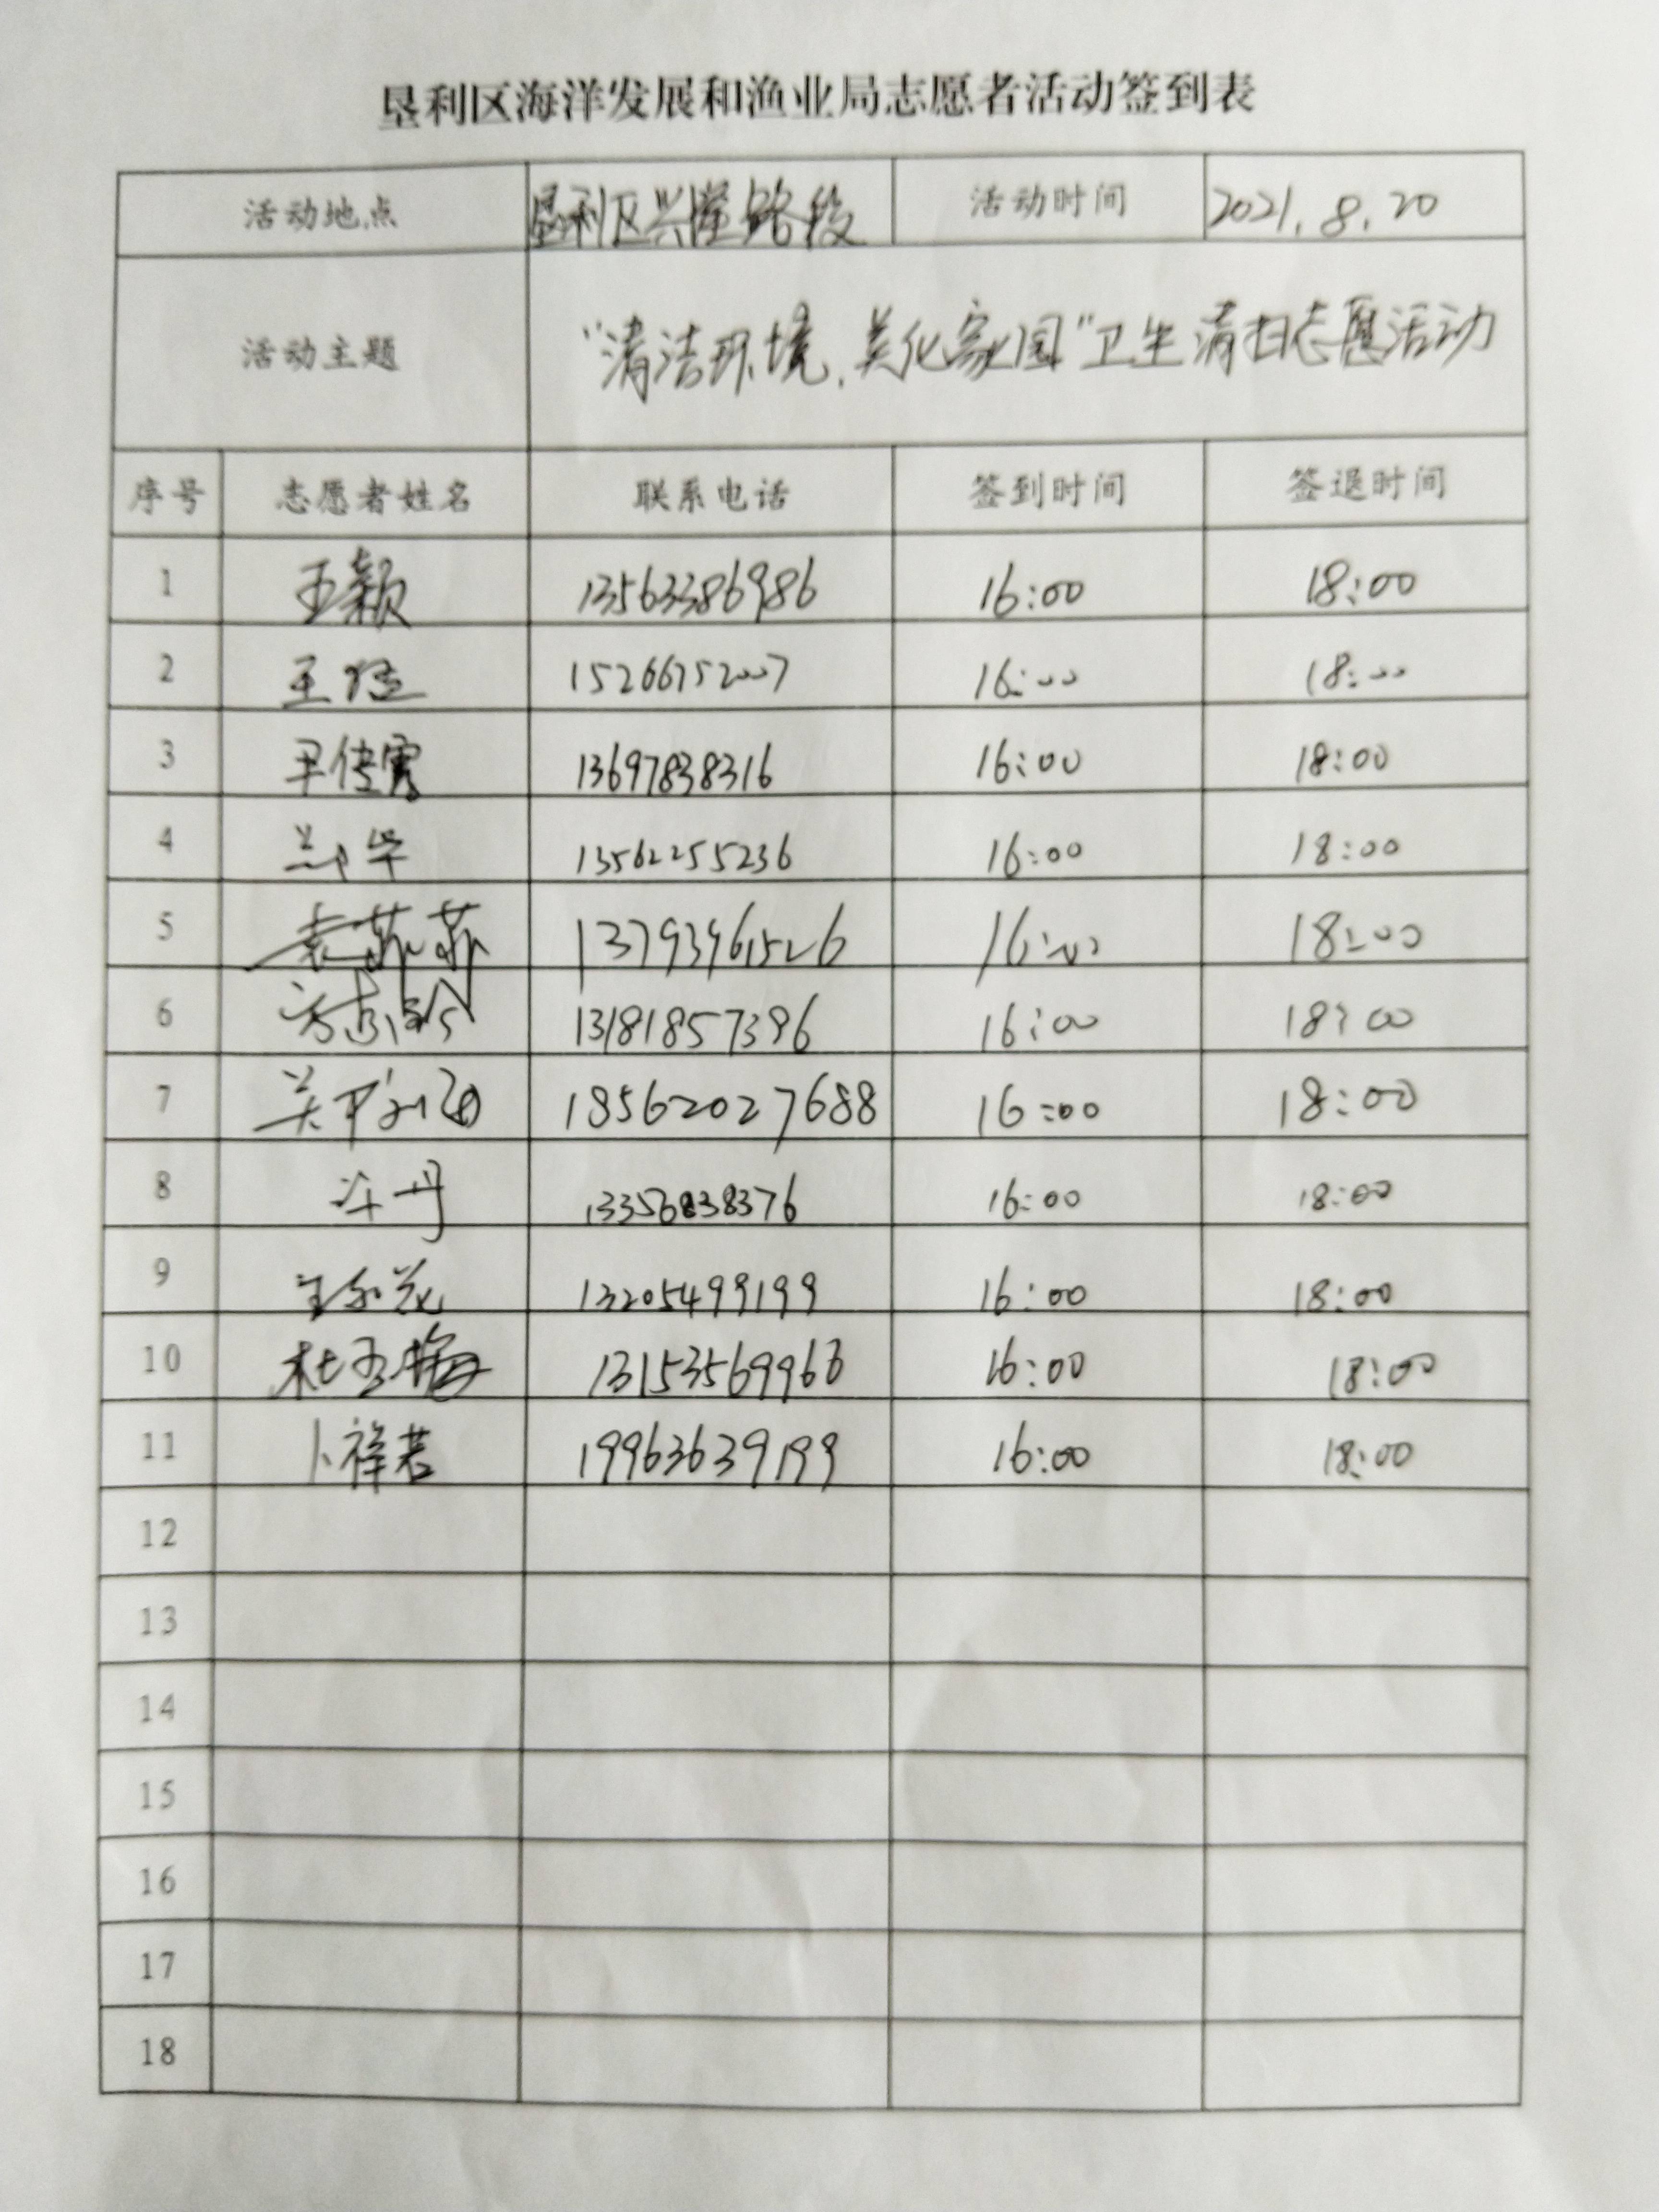 垦利区海洋发展和渔业局志愿者活动签到表
活动地点 垦利区兴隆路段 活动时间 2021.8.20
活动主题 “清洁环境,美化家园”卫生清扫志愿活动
序号 志愿者姓名 联系电话 签到时间 签退时间
1 王颖 13563386986 16:00 18:00
2 王 15266752007 16:00 18:00
3 尹传霞 13697838316 16:00 18:00
4 13562255236 16:00 18:00
5 袁菲菲 13793961526 16:00 18:00
6 13181857396 16:00 18:00
7 18562027688 16:00 18:00
8 许丹 13356838376 16:00 18:00
9 13205499199 16:00 18:00
10 杜秀梅 13153569966 16:00 18:00
11 卜祥君 19963639199 16:00 18:00
12
13
14
15
16
17
18